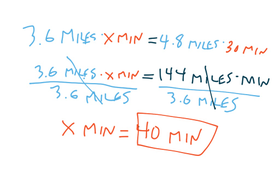 3.6 MILES · X MIN = 4.8 MILES · 30 MIN
3.6 MILES · X MIN = 144 MILES · MIN
3.6 MILES 3.6 MILES
X MIN = 40 MIN